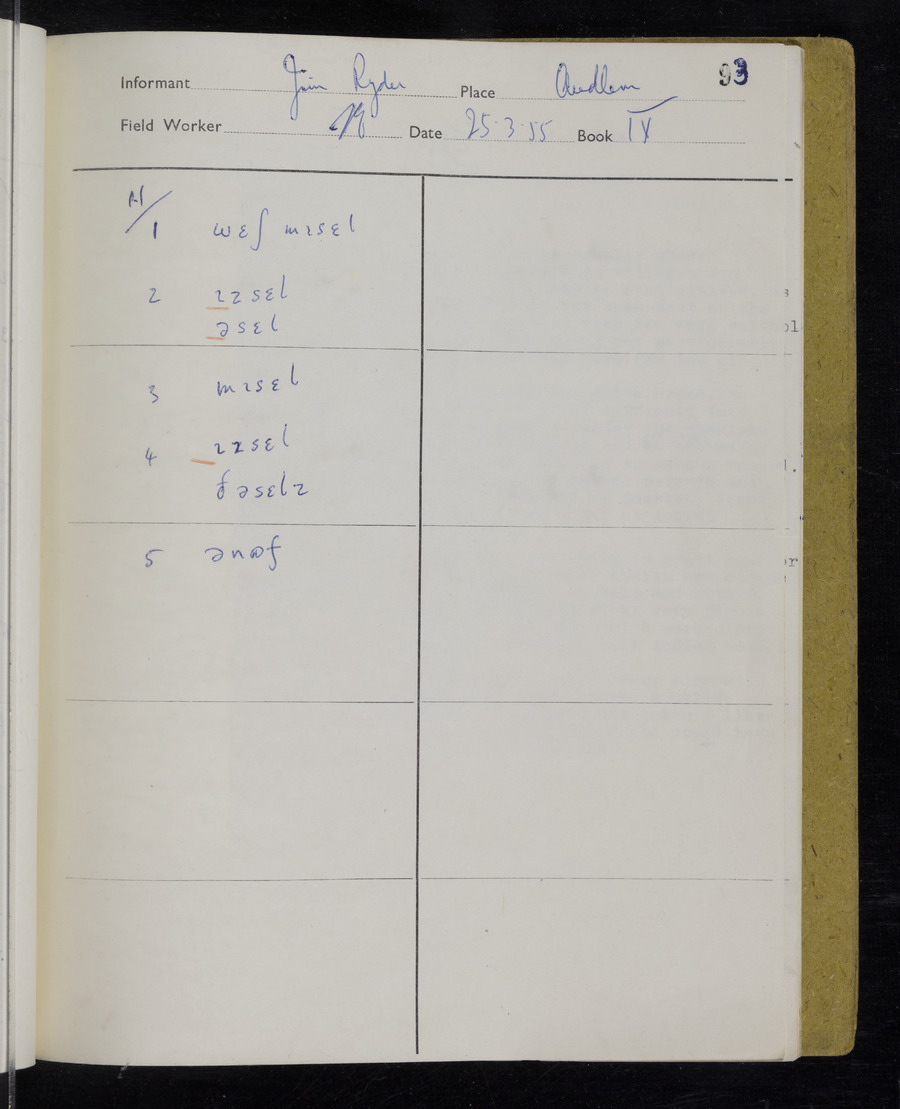 Informant Jim Ryder Place Audlem 93
Field Worker Date 25.3.55 Book IX
11/
1 wɛʃ mɪsɛl
2 ɪzsɛl
əsɛl
3 mɪsɛl
4 ɪzsɛl
əsɛlz
5 ənʊf